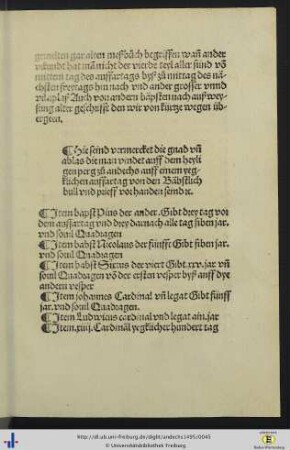 gemelten gar alten meßbůch begriffen wañ ander
vmb hat mã nicht der vierde teyl aller sünd võ
mittem tag des auffartags byß zů mittag des nä-
chsten freytags hin nach vnd ander grosser vnnd
vil aplaß Auch von andern bäpsten nach auß wey-
sung alter geschrifft den wir von kürtze wegen üb-
ergeen.
¶ Hie seind vermercket die gnad vñ
ablas die man vindet auff dem heyli
gen perg zů andechs auff einem yeg-
klichen auffartag von den Bäbstlich
bull vnd prieff vorhanden sendt.
¶ Item bapst Pius der ander. Gibt drey tag vor
dem auffartag vnd drey darnach alle tag siben jar.
vnd souil Quadragen
¶ Item babst Nicolaus der fünfft Gibt siben jar.
vnd souil Quadragen
¶ Item babst Sixtus der viert Gibt. xxv. jar vñ
souil Quadragen võ der ersten vesper byß auff dye
andern vesper
¶ Item johannes Cardinal vñ legat Gibt fünff
jar. vnd souil Quadragen.
¶ Item Ludwicus cardinal vnd legat ain. jar
¶ Item. xiiij. Cardinäl yegklicher hundert tag
http://dl.ub.uni-freiburg.de/diglit/andechs1495/0045
© Universitätsbibliothek Freiburg
Baden-Württemberg